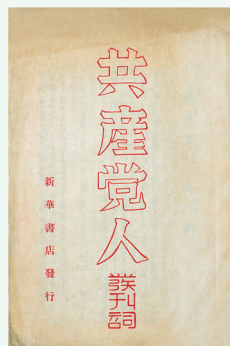 共產党人
發刊詞
新華書店發行